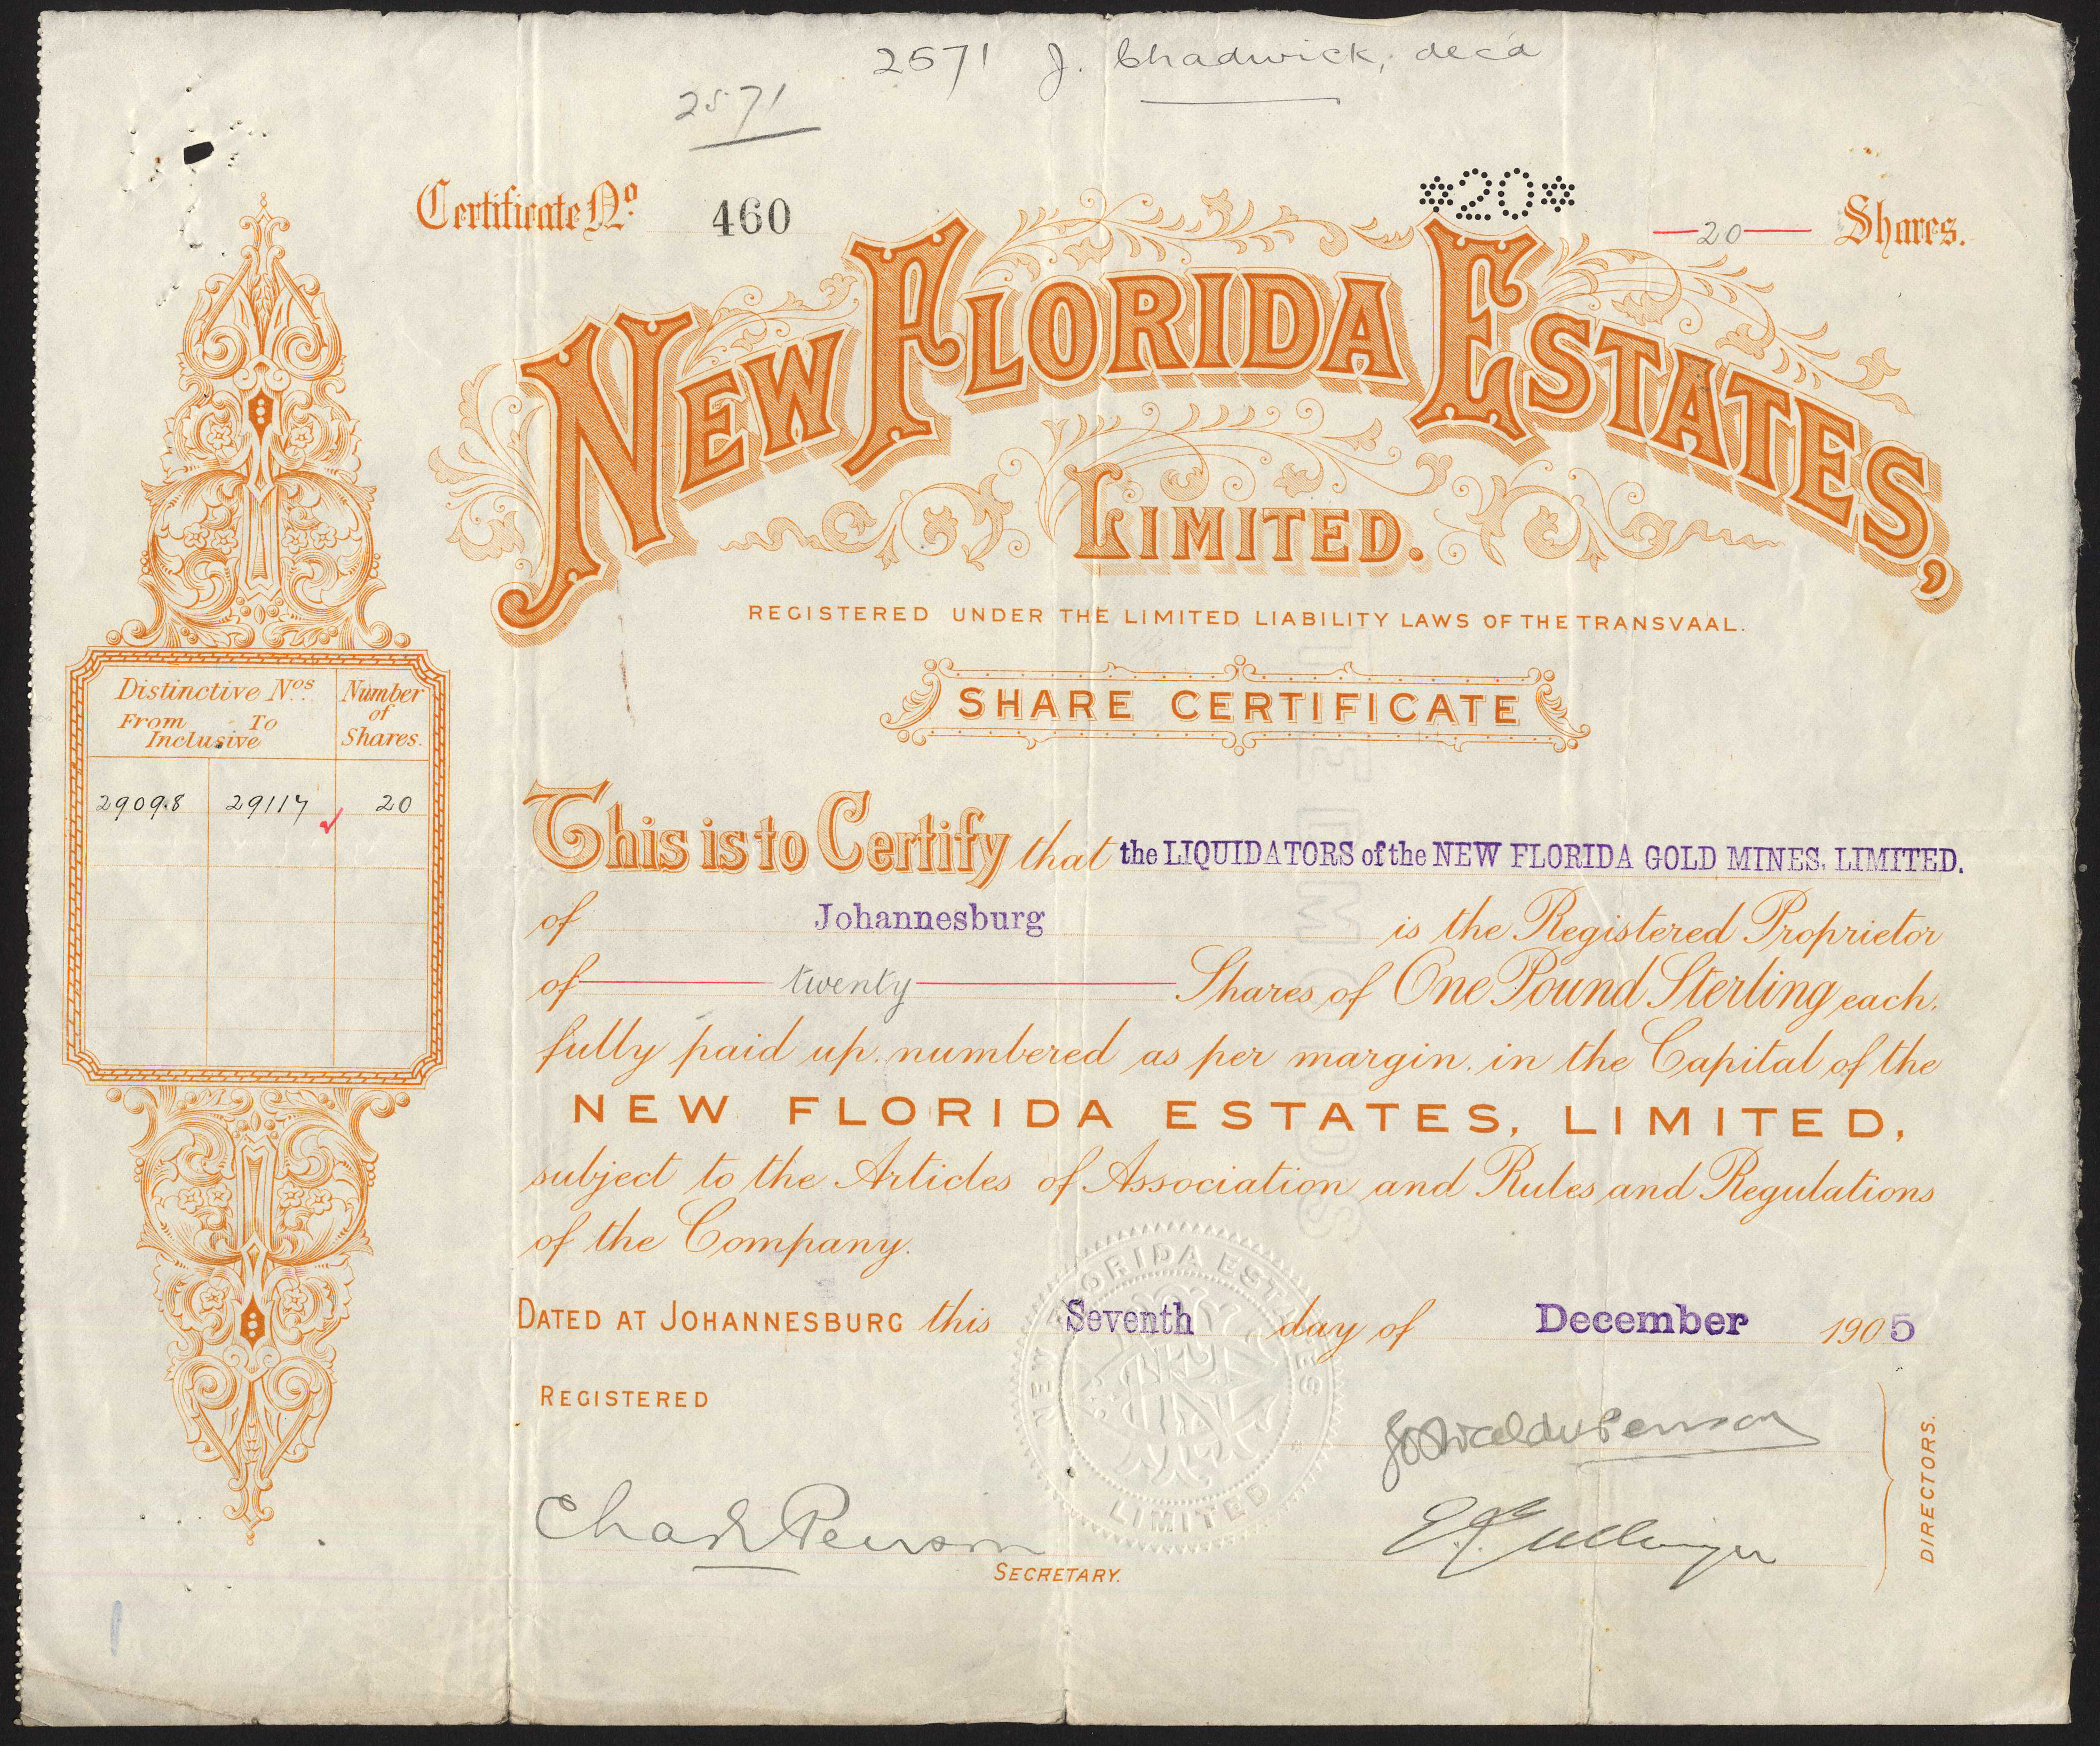 2571 J. Chadwick, decd
2571
Certificate No. 460
*20*
20 Shares.
NEW FLORIDA ESTATES,
LIMITED.
REGISTERED UNDER THE LIMITED LIABILITY LAWS OF THE TRANSVAAL.
SHARE CERTIFICATE
Distinctive Nos. Number
From To of
Inclusive Shares.
29098 29117 20
This is to Certify that the LIQUIDATORS of the NEW FLORIDA GOLD MINES, LIMITED.
of Johannesburg is the Registered Proprietor
of twenty Shares of One Pound Sterling each,
fully paid up, numbered as per margin, in the Capital of the
NEW FLORIDA ESTATES, LIMITED,
subject to the Articles of Association and Rules and Regulations
of the Company.
DATED AT JOHANNESBURG this Seventh day of December 1905
REGISTERED
NEW FLORIDA ESTATES
LIMITED
SECRETARY.
DIRECTORS.